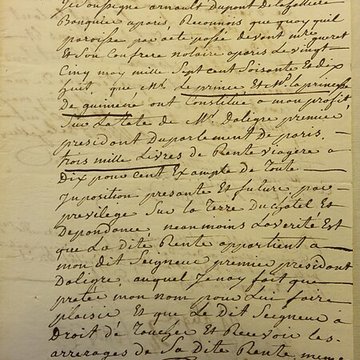 Je soussigné arnault Dupont
Banquier a paris, Reconnois que quoy quil
paroisse par acte passé devant me gueret
Et Son Confrere notaire aparis Le vingt
Cinq may mille Sept cent Soisante Et dix
huit, que Mr. Le prince Et Me. La princesse
de guimenée ont Constitué a mon profit
Sur La tête de Mr. Daligre premier
president Du parlement de paris,
trois mille Livres de Rente viagere a
Dix pour cent Exampte de Toute
Imposition presante Et future par
previlege Sur La Terre Du Et
Dependance, neanmoins La verité Est
que La Dite Rente appartient a
mon dit Seigneur premier president
Daligre, auquel Jenay fait que
preter mon nom pour Lui faire
plaisir Et que Le Dit Seigneur a
Droit de Toucher Et Recevoir Les
arrerages de Sa Dite Rente